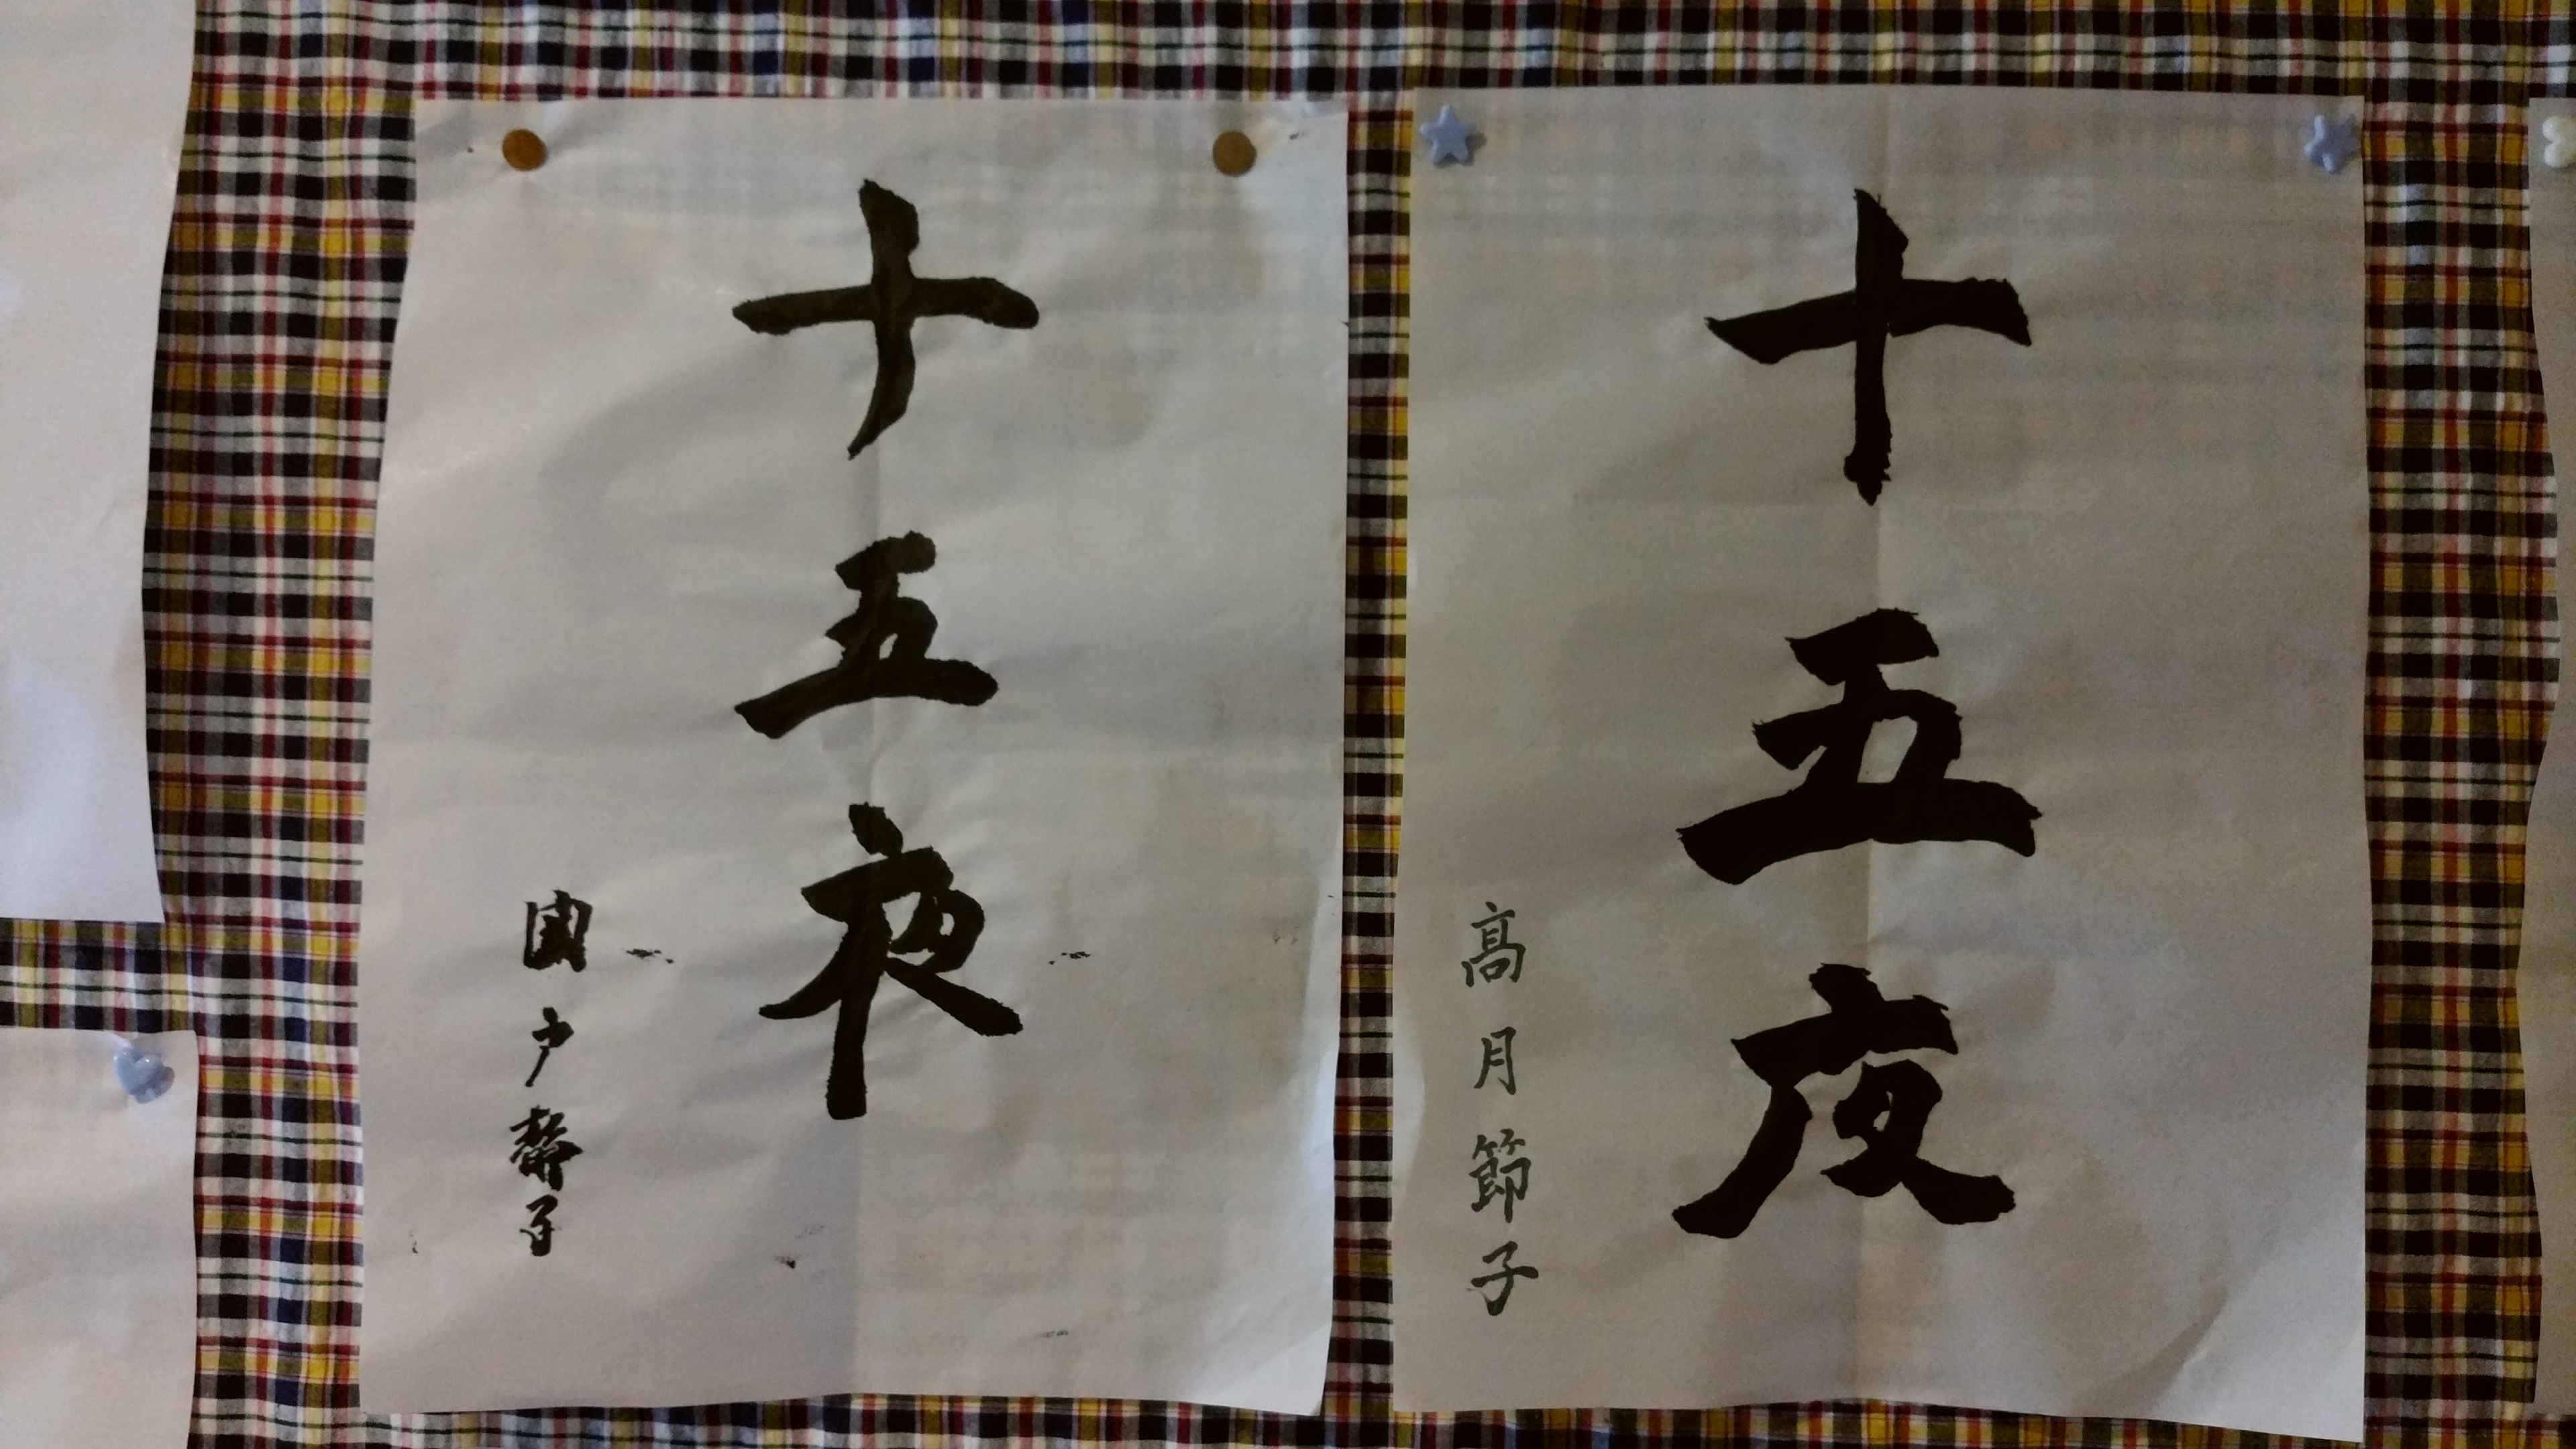 十五夜
高月節子
十五夜
戸静子